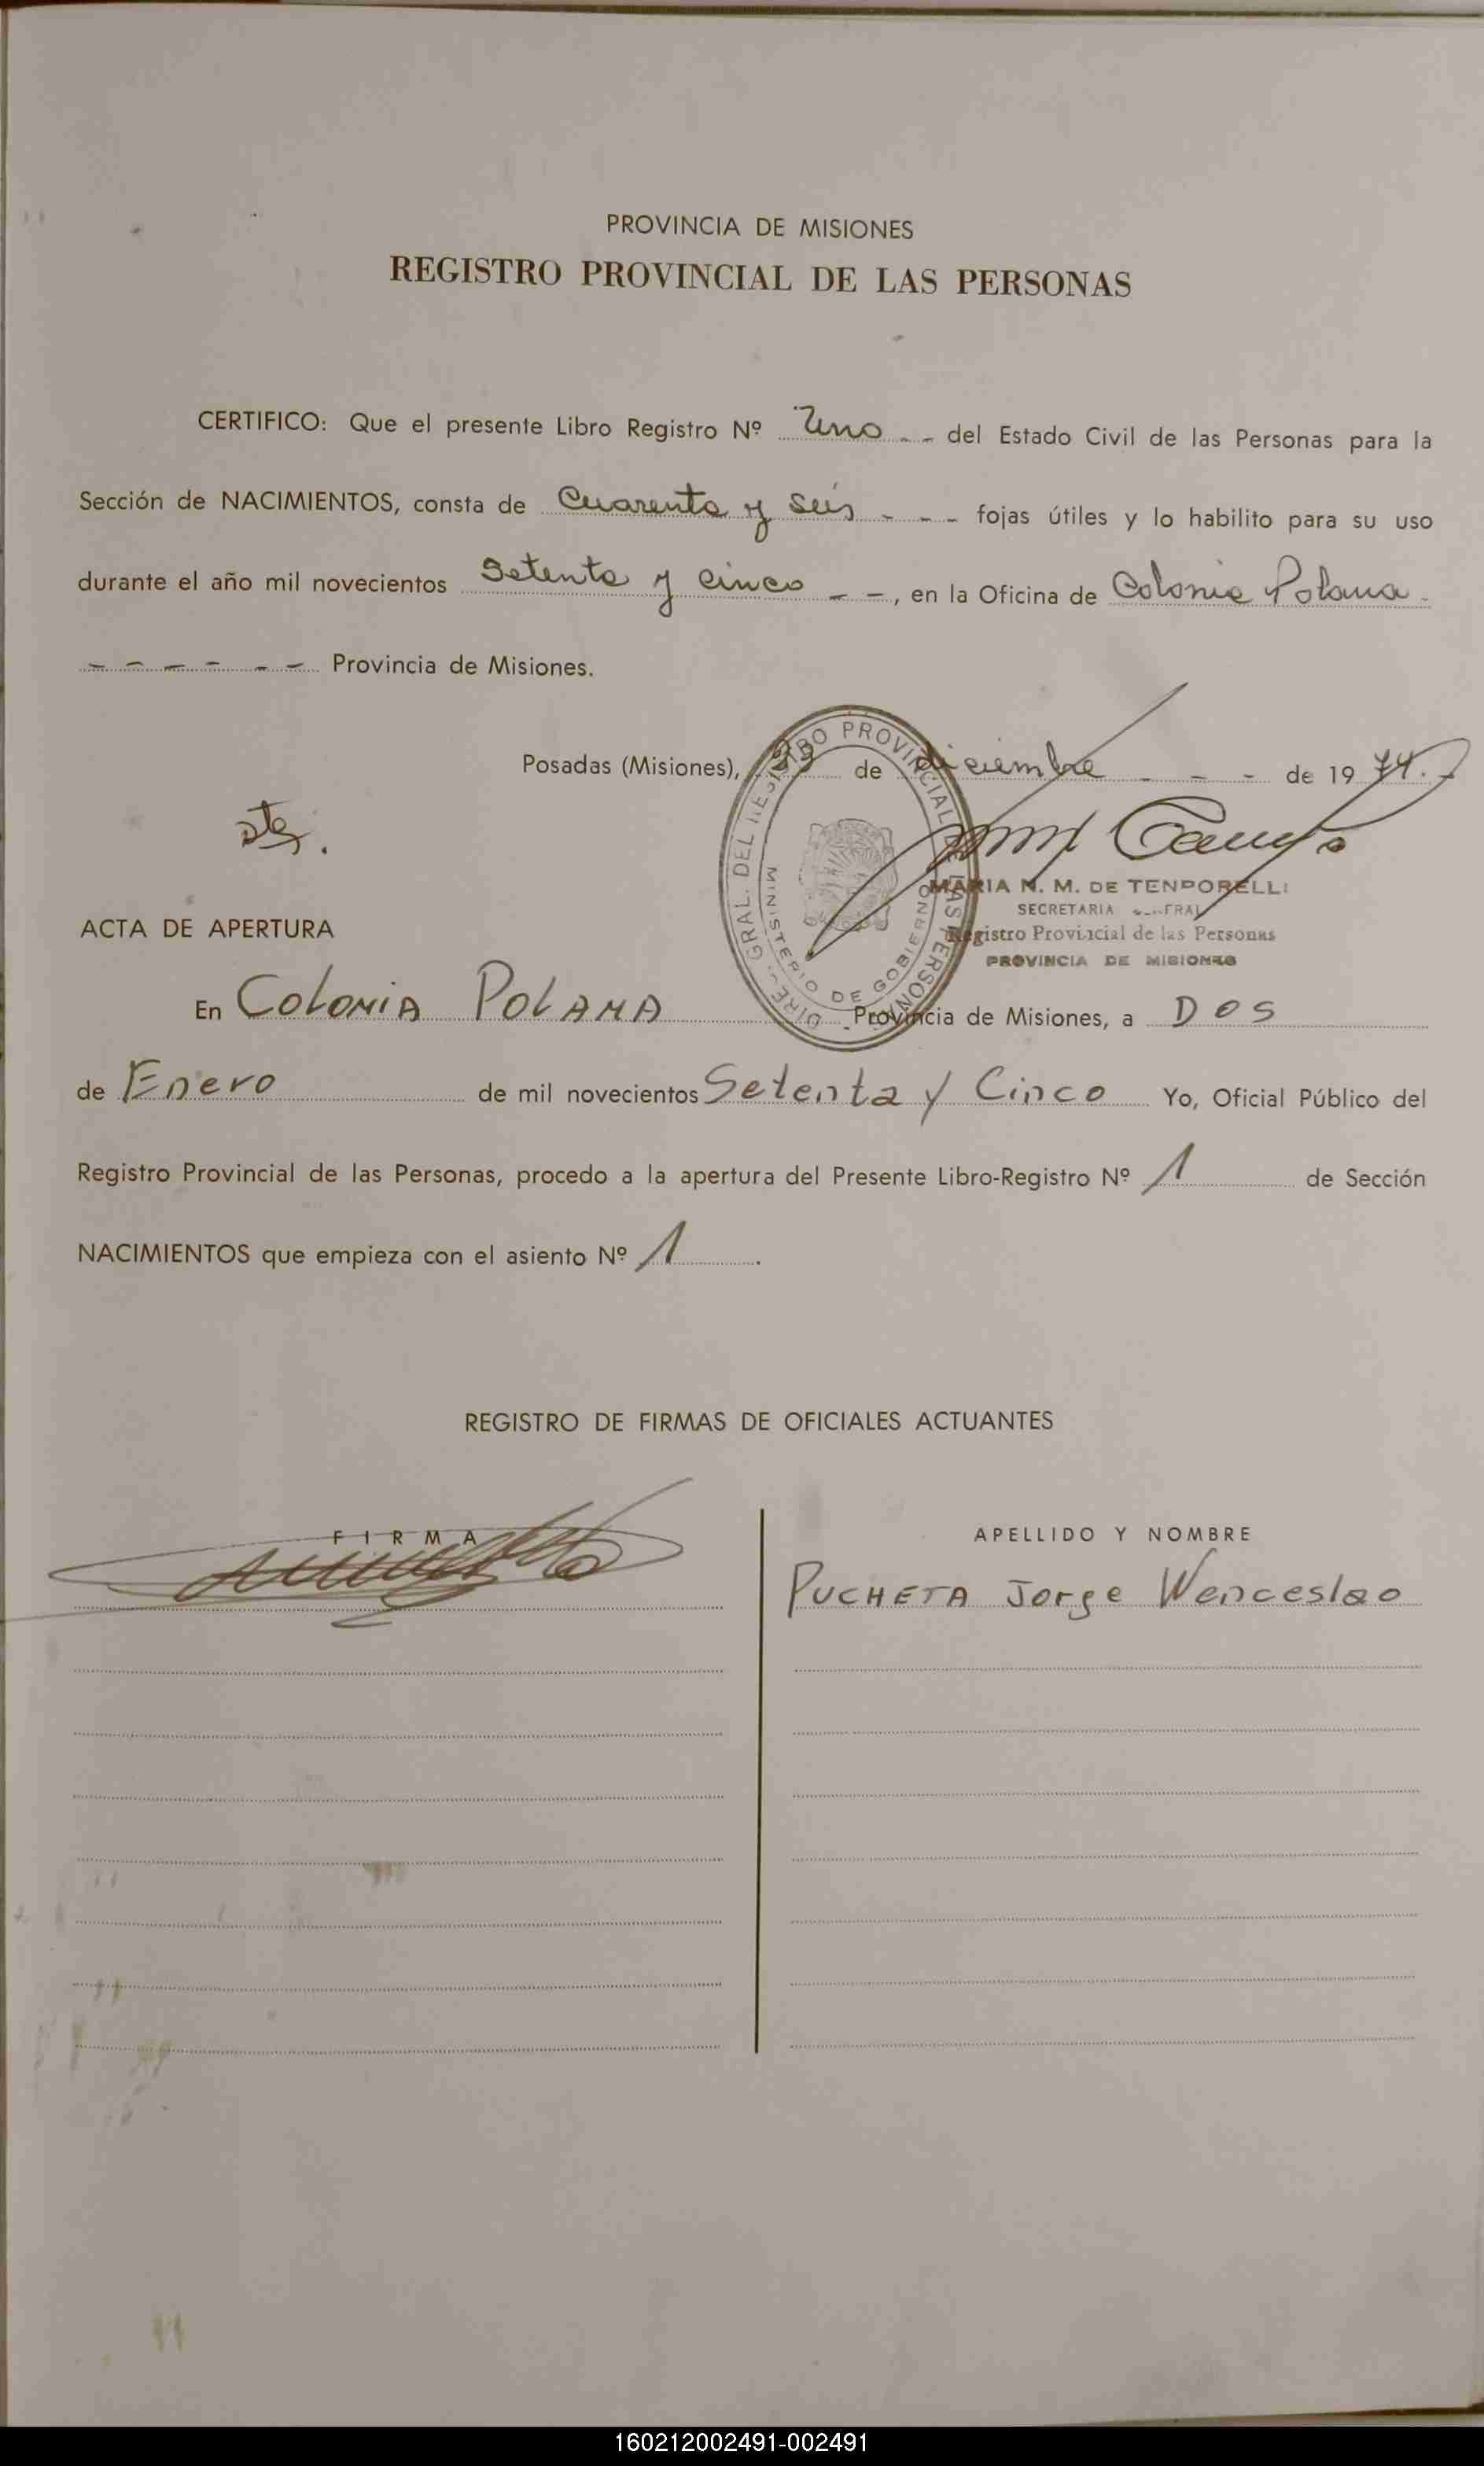 PROVINCIA DE MISIONES
REGISTRO PROVINCIAL DE LAS PERSONAS
CERTIFICO: Que el presente Libro Registro Nº Uno - - del Estado Civil de las Personas para la
Sección de NACIMIENTOS, consta de Cuarenta y Seis - - - fojas útiles y lo habilito para su uso
durante el año mil novecientos Setenta y cinco - -, en la Oficina de Colonia Polana -
- - - - - - Provincia de Misiones.
Posadas (Misiones), 23 de diciembre - - - de 1974.-
MARIA N. M. DE TENPORELLI
SECRETARIA
Registro Provincial de las Personas
PROVINCIA DE MISIONES
GRAL. DEL REGISTRO PROVINCIAL DE LAS PERSONAS
MINISTERIO DE GOBIERNO
ACTA DE APERTURA
En COLONIA POLANA Provincia de Misiones, a DOS
de Enero de mil novecientos Setenta y Cinco Yo, Oficial Público del
Registro Provincial de las Personas, procedo a la apertura del Presente Libro-Registro Nº 1 de Sección
NACIMIENTOS que empieza con el asiento Nº 1.
REGISTRO DE FIRMAS DE OFICIALES ACTUANTES
FIRMA
APELLIDO Y NOMBRE
PUCHETA Jorge Wenceslao
160212002491-002491